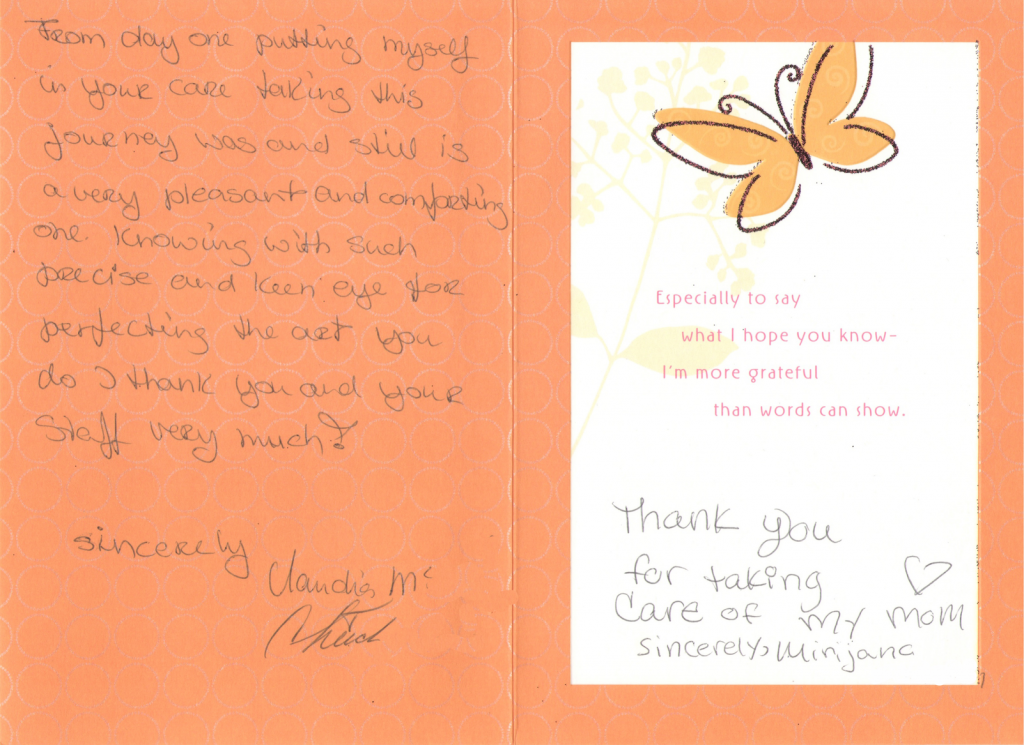 From day one putting myself
in your care taking this
journey was and still is
a very pleasant and comforting
one. Knowing with such
precise and keen eye for
perfecting the art you
do I thank you and your
Staff very much!
sincerely
Claudia Mc
Especially to say
what I hope you know-
I'm more grateful
than words can show.
Thank you
for taking
Care of my mom
sincerely, Mirijana